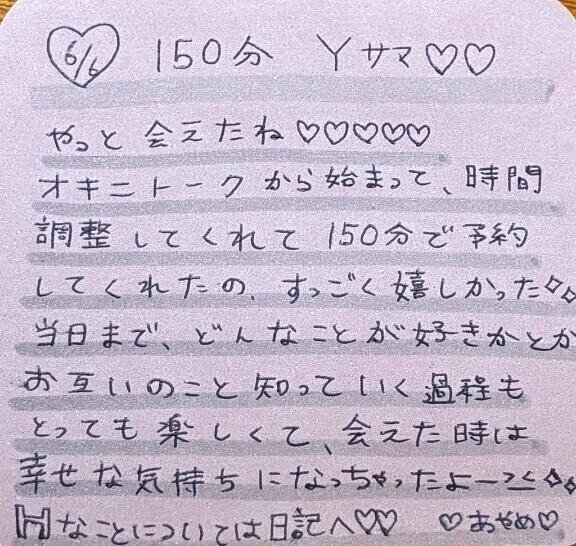 6/6 150分 Yサマ♡♡
やっと会えたね♡♡♡♡♡
オキニトークから始まって、時間
調整してくれて150分で予約
してくれたの、すっごく嬉しかった✧✧
当日まで、どんなことが好きかとか
お互いのこと知っていく過程も
とっても楽しくて、会えた時は
幸せな気持ちになっちゃったよーっと✧✧
Hなことについては日記へ♡♡ ♡あやめ♡